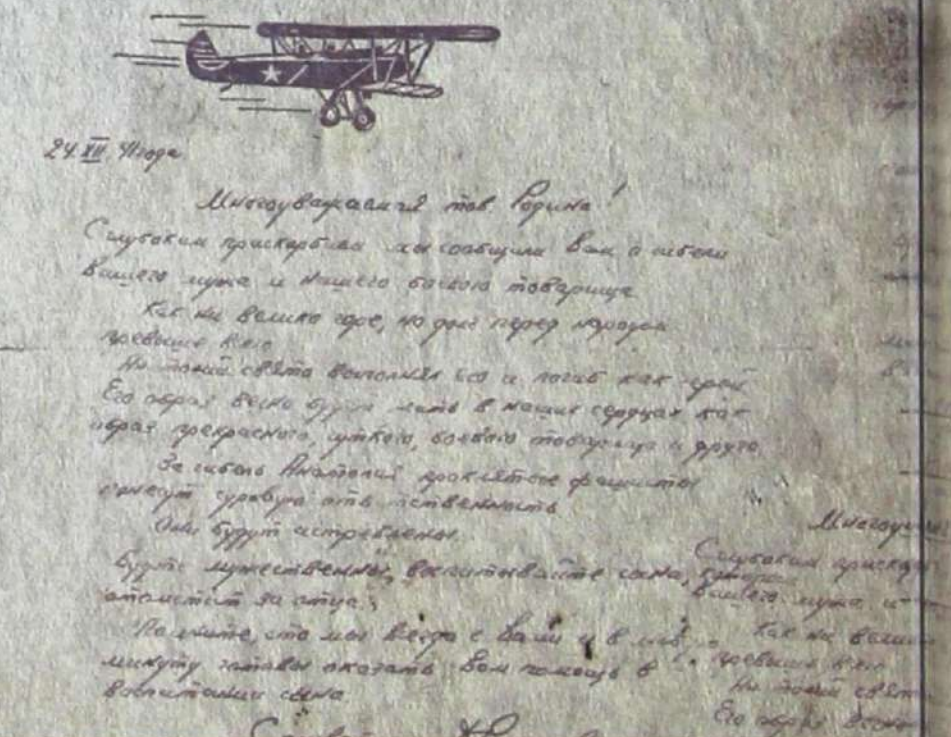 24. XII 41 года
Многоуважаемая тов. Родина!
С глубоким прискорбием мы сообщили Вам о гибели
Вашего мужа и нашего боевого товарища
Как ни велико горе, но долг перед народом
превыше всего
выполнял его и погиб как герой
Его образ вечно будет жить в наших сердцах как
образ прекрасного, чуткого, боевого товарища и друга
За гибель Анатолия проклятые фашисты
понесут суровую ответственность
Они будут истреблены.
Будьте мужественны, воспитывайте сына,
отомстит за отца.
Помните, что мы всегда с Вами и в
минуту готовы оказать Вам помощь в
воспитании сына
Многоув
С глубоким прискор
Вашего мужа и
Как ни велико
превыше всего
Его образ вечно